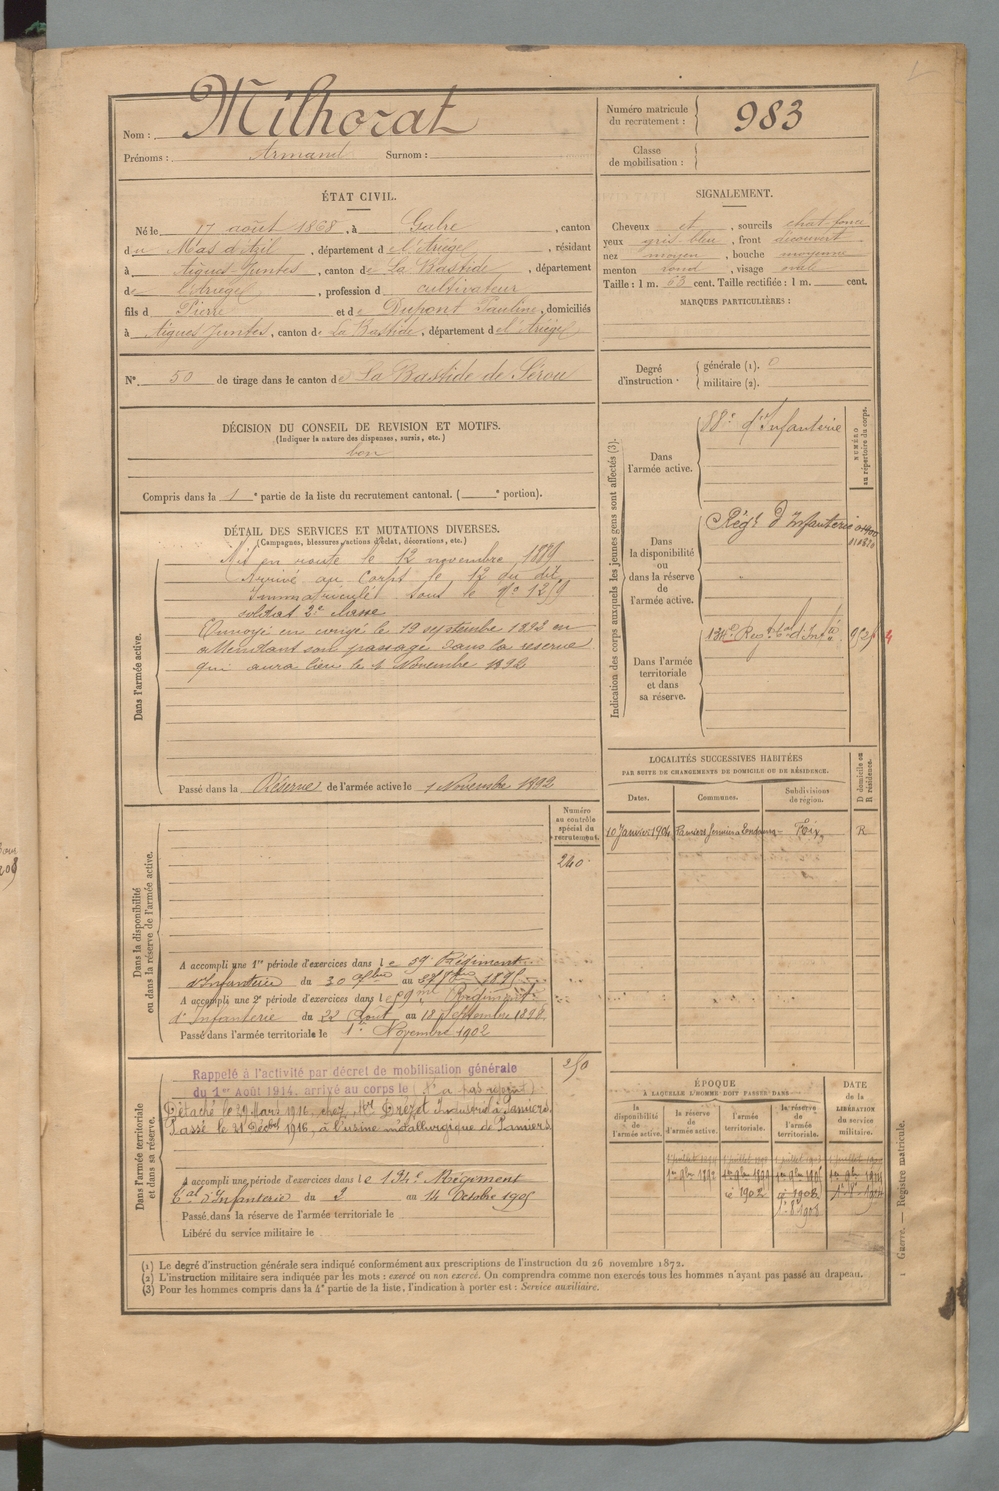 Nom : Milhorat
Prénoms : Armand Surnom :
Numéro matricule du recrutement : 983
Classe de mobilisation :
ÉTAT CIVIL.
Né le 17 août 1868, à Gabre, canton
du Mas d'Azil, département de l'Ariège, résidant
à Aigues-Juntes, canton de La Bastide, département
de l'Ariège, profession de cultivateur
fils de Pierre et de Dupont Pauline, domiciliés
à Aigues Juntes, canton de La Bastide, département de l'Ariège
N° 50 de tirage dans le canton de La Bastide de Sérou
SIGNALEMENT.
Cheveux et, sourcils chat-foncé
yeux gris-bleu, front découvert
nez moyen, bouche moyenne
menton rond, visage ovale
Taille : 1 m. 63 cent. Taille rectifiée : 1 m. cent.
MARQUES PARTICULIÈRES :
Degré d'instruction. générale (1). 0
militaire (2).
DÉCISION DU CONSEIL DE REVISION ET MOTIFS.
(Indiquer la nature des dispenses, sursis, etc.)
bon
Compris dans la 1e partie de la liste du recrutement cantonal. ( e portion).
DÉTAIL DES SERVICES ET MUTATIONS DIVERSES.
(Campagnes, blessures, actions d'éclat, décorations, etc.)
Dans l'armée active.
Mis en route le 12 novembre 1889
Arrivé au Corps le 12 du dit
Immatriculé sous le N° 1259
soldat 2e classe
Envoyé en congé le 19 septembre 1892 en
attendant son passage dans la réserve
qui aura lieu le 1 Novembre 1892
Passé dans la Réserve de l'armée active le 1 Novembre 1892
Indication des corps auxquels les jeunes gens sont affectés (3).
NUMÉRO au répertoire du corps.
Dans l'armée active.
88e d'Infanterie
Dans la disponibilité ou dans la réserve de l'armée active.
Régt d'Infanterie
Dans l'armée territoriale et dans sa réserve.
134e Regt tal d'Infie
LOCALITÉS SUCCESSIVES HABITÉES
PAR SUITE DE CHANGEMENTS DE DOMICILE OU DE RÉSIDENCE.
Dates. Communes. Subdivisions de région. D domicile ou R résidence.
10 Janvier 1904 Pamiers Foix R
Dans la disponibilité ou dans la réserve de l'armée active.
Numéro au contrôle spécial du recrutement.
240
A accompli une 1re période d'exercices dans le 59 Régiment
d'Infanterie du 30 7bre au 1895
A accompli une 2e période d'exercices dans le 59me Régiment
d'Infanterie du 22 Août au 18 Septembre 1898
Passé dans l'armée territoriale le 1er Novembre 1902
Dans l'armée territoriale et dans sa réserve.
250
Rappelé à l'activité par décret de mobilisation générale
du 1er Août 1914, arrivé au corps le (
Détaché le 29 Mars 1916, chez Mr Industriel à Pamiers.
Passé le 21 Décbre 1916, à l'usine métallurgique de Pamiers
A accompli une période d'exercices dans le 134e Régiment
tal d'Infanterie du 2 au 14 Octobre 1905
Passé dans la réserve de l'armée territoriale le
Libéré du service militaire le
ÉPOQUE
A LAQUELLE L'HOMME DOIT PASSER DANS
la disponibilité de l'armée active. la réserve de l'armée active. l'armée territoriale. la réserve de l'armée territoriale.
DATE de la LIBÉRATION du service militaire.
1er 9bre 1892
1902
1908
(1) Le degré d'instruction générale sera indiqué conformément aux prescriptions de l'instruction du 26 novembre 1872.
(2) L'instruction militaire sera indiquée par les mots : exercé ou non exercé. On comprendra comme non exercés tous les hommes n'ayant pas passé au drapeau.
(3) Pour les hommes compris dans la 4e partie de la liste, l'indication à porter est : Service auxiliaire.
1 Guerre. — Registre matricule.